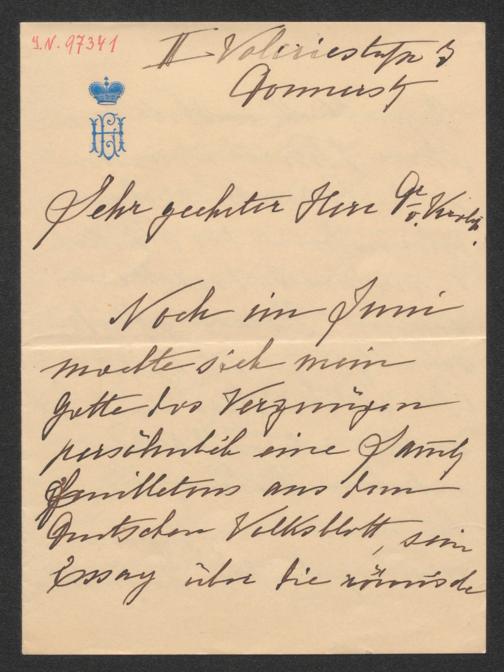 I.N. 97341
II Valeriestraße 3
Donnerst
Sehr geehrter Herr Dr v.
Noch im Juni
machte sich mein
Gatte das Vergnügen
persönlich eine Samlg
Feuilletons aus dem
Deutschen Volksblatt, sein
Essay über die römische